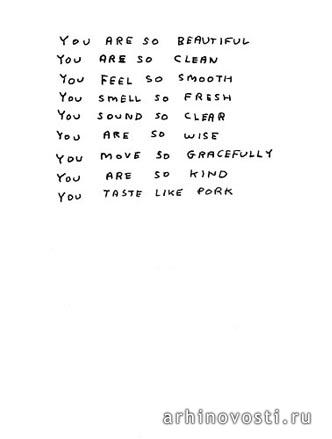 YOU ARE SO BEAUTIFUL
YOU ARE SO CLEAN
YOU FEEL SO SMOOTH
YOU SMELL SO FRESH
YOU SOUND SO CLEAR
YOU ARE SO WISE
YOU MOVE SO GRACEFULLY
YOU ARE SO KIND
YOU TASTE LIKE PORK
arhinovosti.ru